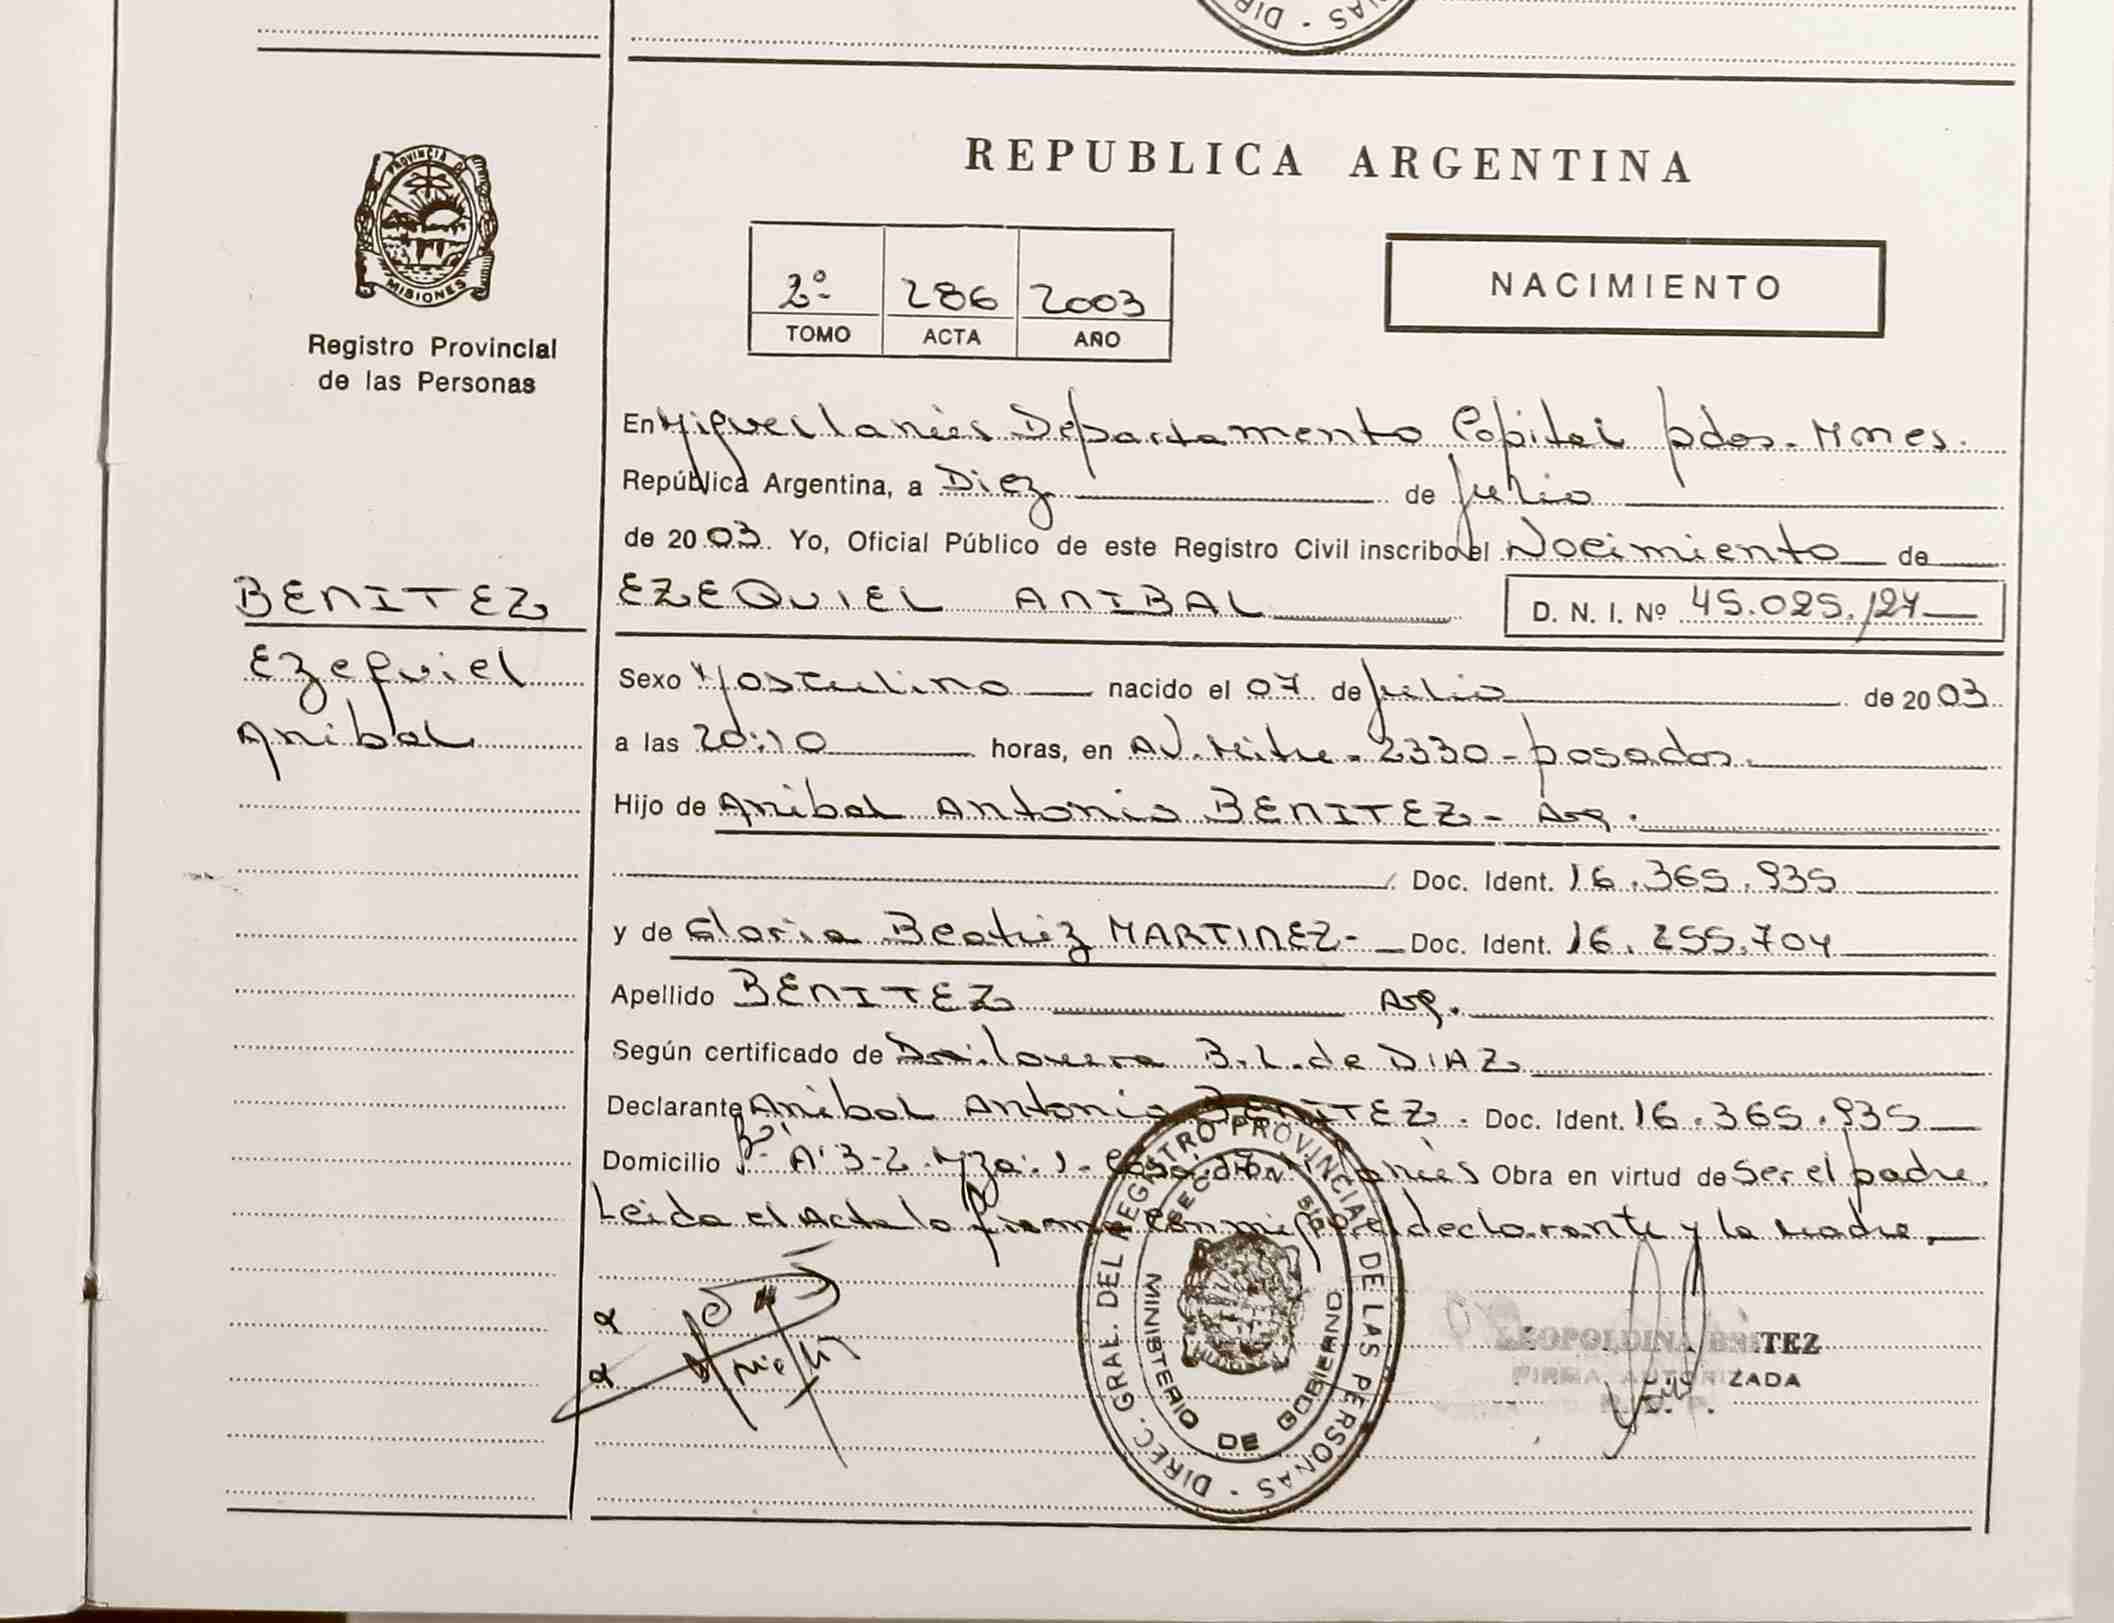 DIREC. · SONAS
PROVINCIA DE
MISIONES
Registro Provincial
de las Personas
REPUBLICA ARGENTINA
2º 286 2003
TOMO ACTA AÑO
NACIMIENTO
En Miguel Lanús Departamento Capital pdas. Mnes.
República Argentina, a Diez de Julio
de 2003. Yo, Oficial Público de este Registro Civil inscribo el Nacimiento de
BENITEZ
Ezequiel
Anibal
EZEQUIEL ANIBAL D. N. I. Nº 45.025.124
Sexo Masculino nacido el 07 de Julio de 2003
a las 20:10 horas, en Av. Mitre - 2330 - posadas.
Hijo de Anibal Antonio BENITEZ - Arg.
Doc. Ident. 16.365.935
y de Gloria Beatriz MARTINEZ - Doc. Ident. 16.255.704
Apellido BENITEZ Arg.
Según certificado de B. L. de DIAZ
Declarante Anibal Antonio BENITEZ. Doc. Ident. 16.365.935
Domicilio A 3-2 Mza: 1 - Casa Obra en virtud de Ser el padre.
Leida el Acta la firma conmigo el declarante y la madre.
DIREC. GRAL. DEL REGISTRO PROVINCIAL DE LAS PERSONAS
MINISTERIO DE GOBIERNO
LEOPOLDINA BENITEZ
FIRMA AUTORIZADA